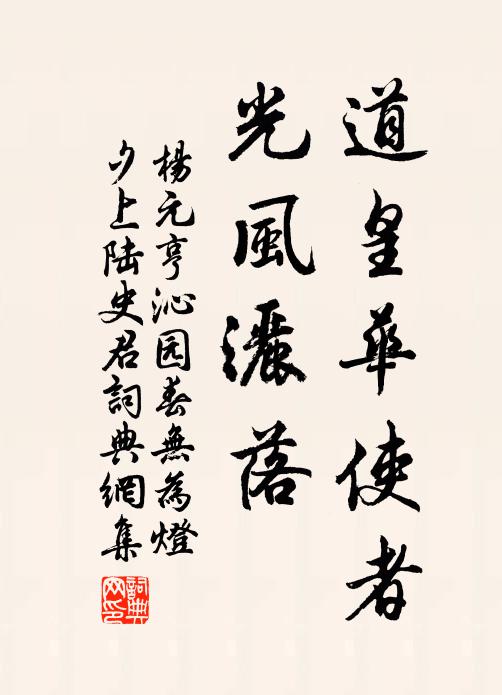 道皇華使者
光風灑落
楊元亨沁园春無為燈
夕上陆史君詞典網集
詞典
网印